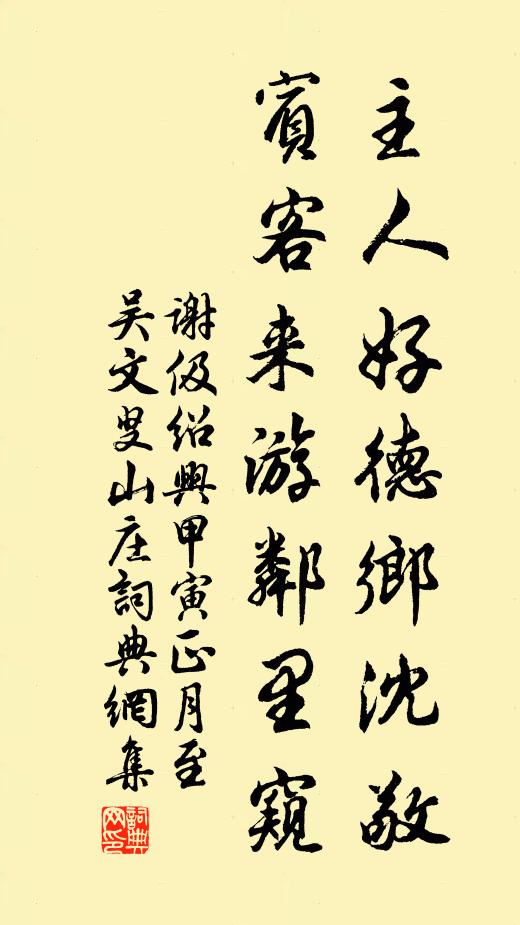 主人好德鄉沈敬
賓客来游鄰里窺
謝伋绍興甲寅正月至
吴文叟山庄詞典網集
詞典网印